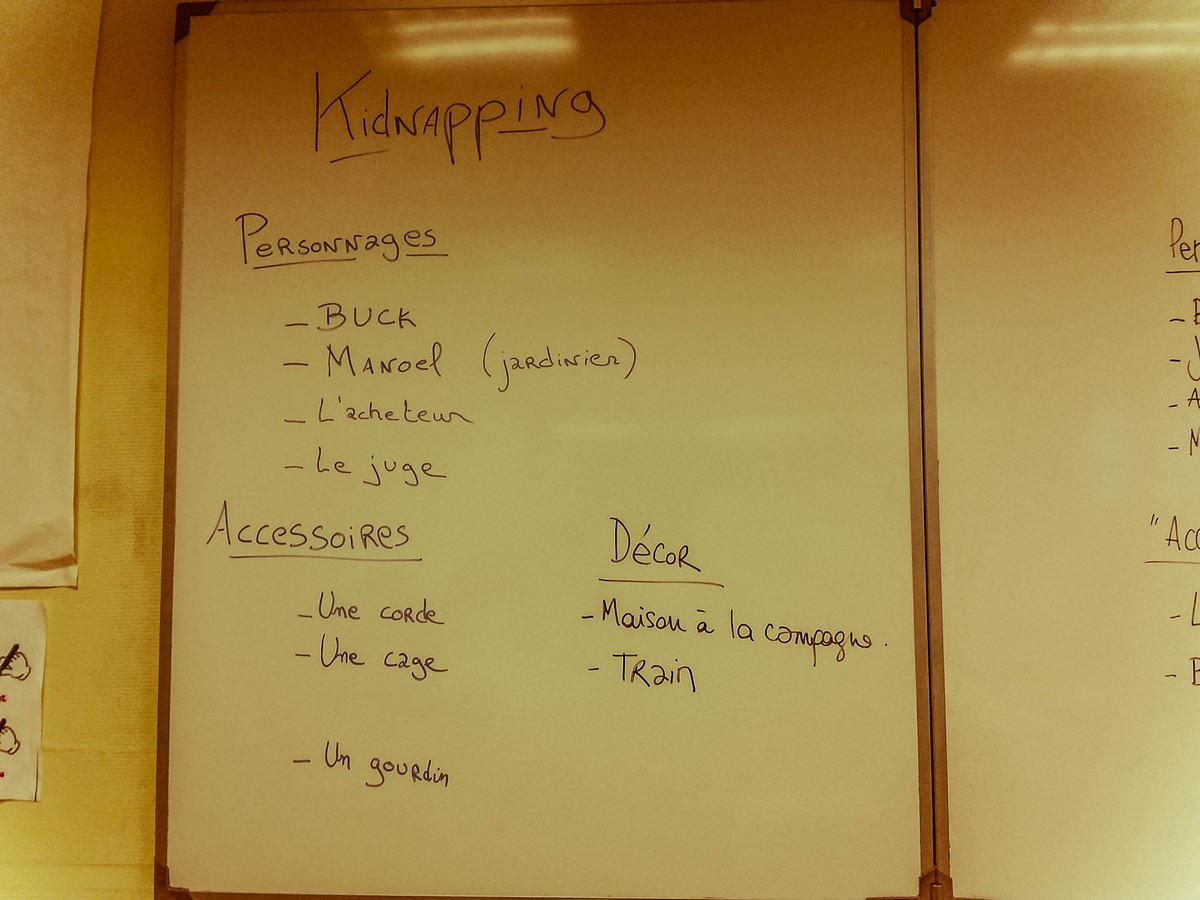 Kidnapping
Personnages
- Buck
- Manoel (jardinier)
- L'acheteur
- Le juge
Accessoires
- Une corde
- Une cage
- Un gourdin
Décor
- Maison à la campagne.
- Train
Per
"Acc